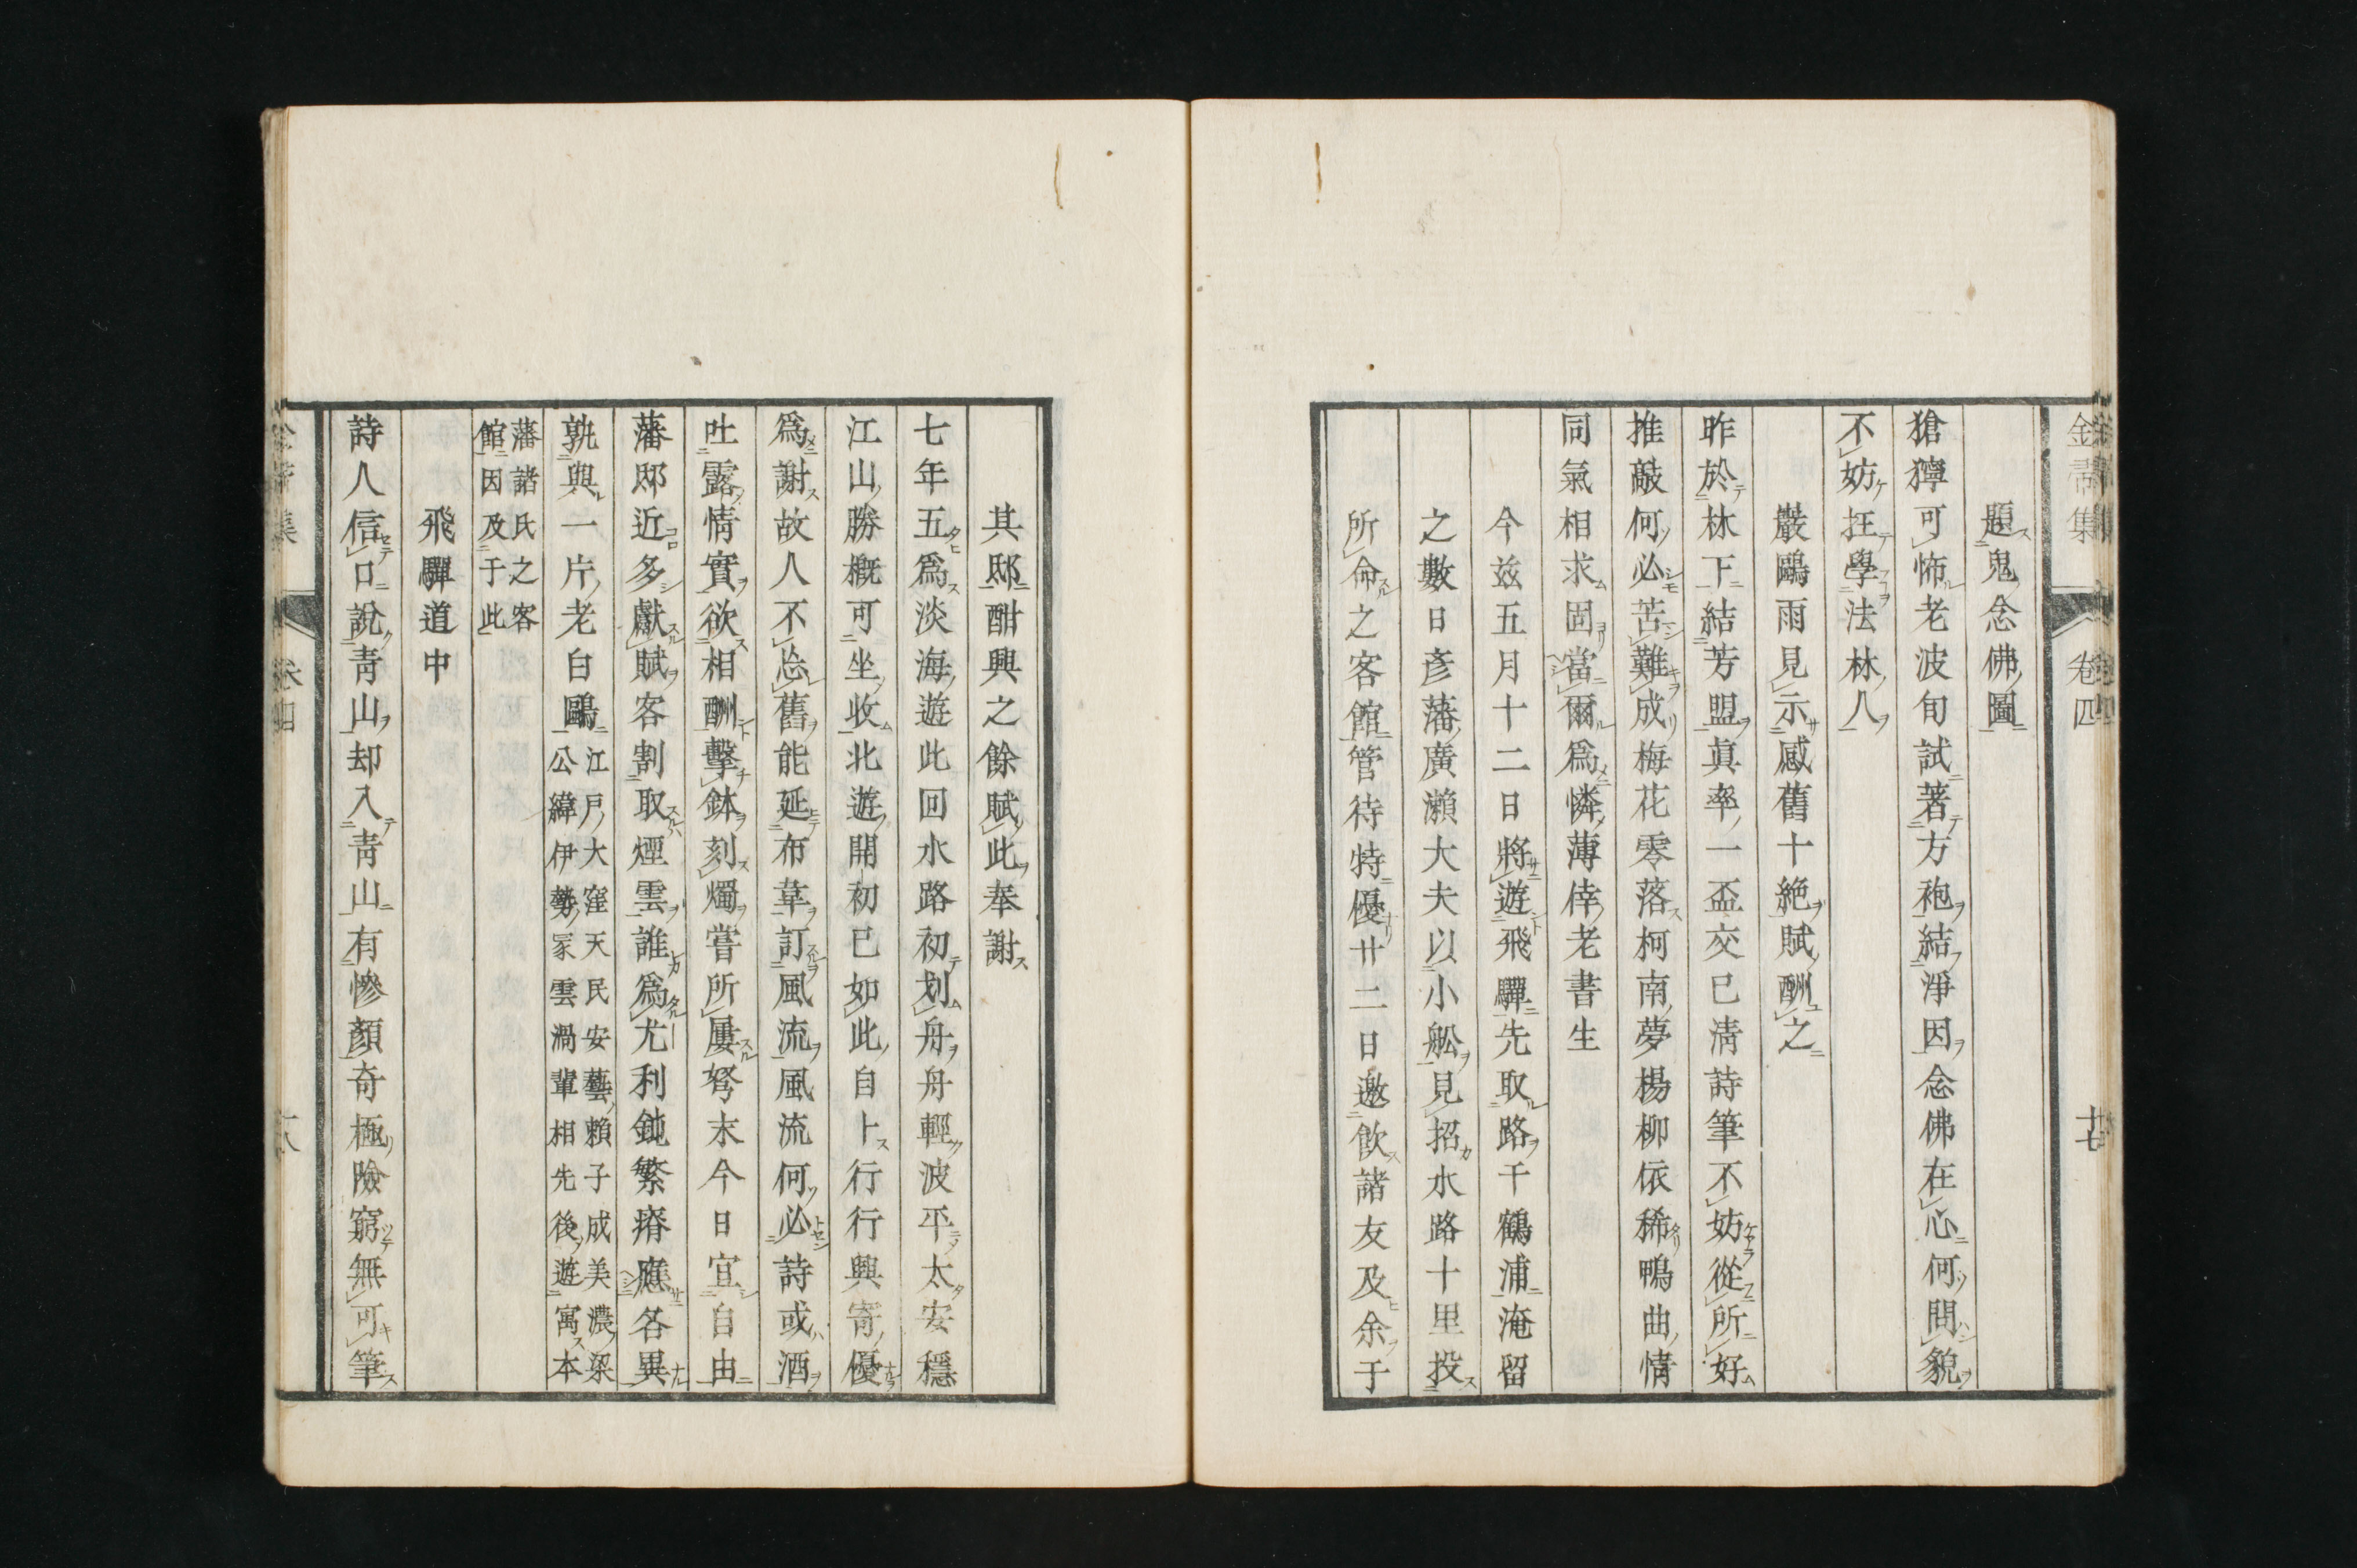 金帚集 卷四 十七
題鬼念佛圖
獊獰可怖老波旬試著方袍結淨因念佛在心何問貌
不妨抂學法林人
巖鷗雨見示感舊十絶賦酬之
昨於林下結芳盟眞率一盃交已淸詩筆不妨從所好
推敲何必苦難成梅花零落柯南夢楊柳依稀鴨曲情
同氣相求固當爾爲憐薄倖老書生
今玆五月十二日將遊飛驒先取路千鶴浦淹留
之數日彥藩廣瀨大夫以小舩見招水路十里投
所命之客館管待特優廿二日邀飮諸友及余于
其邸酣興之餘賦此奉謝
七年五爲淡海遊此回水路初划舟舟輕波平太安穩
江山勝概可坐收北遊開初已如此自卜行行興寄優
爲謝故人不忘舊能延布韋訂風流風流何必詩或酒
吐露情實欲相酬擊鉢刻燭嘗所屢駑末今日宜自由
藩邸近多獻賦客割取煙雲誰爲尤利鈍繁瘠應各異
孰與一片老白鷗江戶大窪天民安藝賴子成美濃梁
公緯伊勢冢雲渦輩相先後遊寓本
藩諸氏之客
館因及于此
飛驒道中
詩人信口說靑山却入靑山有慘顏奇極險窮無可筆